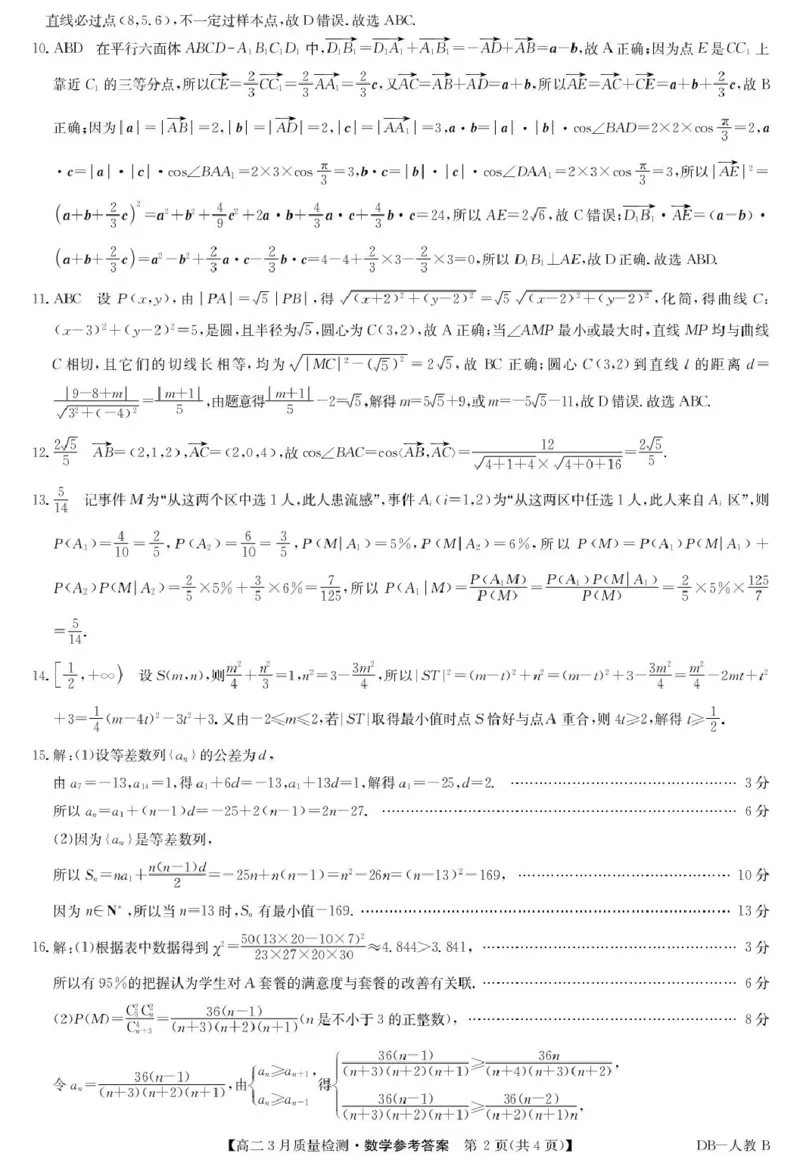 直线必过点(8,5.6),不一定过样本点,故D错误.故选ABC.
10. ABD 在平行六面体ABCD-A₁B₁C₁D₁中,$\overrightarrow{D_1B_1}=\overrightarrow{D_1A_1}+\overrightarrow{A_1B_1}=-\overrightarrow{AD}+\overrightarrow{AB}=a-b$,故A正确;因为点E是CC₁上
靠近C₁的三等分点,所以$\overrightarrow{CE}=\frac{2}{3}\overrightarrow{CC_1}=\frac{2}{3}\overrightarrow{AA_1}=\frac{2}{3}c$,又$\overrightarrow{AC}=\overrightarrow{AB}+\overrightarrow{AD}=a+b$,所以$\overrightarrow{AE}=\overrightarrow{AC}+\overrightarrow{CE}=a+b+\frac{2}{3}c$,故B
正确;因为$|a|=|\overrightarrow{AB}|=2,|b|=|\overrightarrow{AD}|=2,|c|=|\overrightarrow{AA_1}|=3,a·b=|a|·|b|·\cos∠BAD=2×2×\cos\frac{π}{3}=2,a$
$·c=|a|·|c|·\cos∠BAA_1=2×3×\cos\frac{π}{3}=3,b·c=|b|·|c|·\cos∠DAA_1=2×3×\cos\frac{π}{3}=3$,所以$|\overrightarrow{AE}|^2=$
$(a+b+\frac{2}{3}c)^2=a^2+b^2+\frac{4}{9}c^2+2a·b+\frac{4}{3}a·c+\frac{4}{3}b·c=24$,所以$AE=2\sqrt{6}$,故C错误;$\overrightarrow{D_1B_1}·\overrightarrow{AE}=(a-b)·$
$(a+b+\frac{2}{3}c)=a^2-b^2+\frac{2}{3}a·c-\frac{2}{3}b·c=4-4+\frac{2}{3}×3-\frac{2}{3}×3=0$,所以D₁B₁⊥AE,故D正确.故选ABD.
11. ABC 设P(x,y),由$|PA|=\sqrt{5}|PB|$,得$\sqrt{(x+2)^2+(y-2)^2}=\sqrt{5}\sqrt{(x-2)^2+(y-2)^2}$,化简,得曲线C:
$(x-3)^2+(y-2)^2=5$,是圆,且半径为$\sqrt{5}$,圆心为C(3,2),故A正确;当∠AMP最小或最大时,直线MP均与曲线
C相切,且它们的切线长相等,均为$\sqrt{|MC|^2-(\sqrt{5})^2}=2\sqrt{5}$,故BC正确;圆心C(3,2)到直线l的距离d=
$\frac{|9-8+m|}{\sqrt{3^2+(-4)^2}}=\frac{|m+1|}{5}$,由题意得$\frac{|m+1|}{5}-2=\sqrt{5}$,解得$m=5\sqrt{5}+9$,或$m=-5\sqrt{5}-11$,故D错误.故选ABC.
12. $\frac{2\sqrt{5}}{5}$ $\overrightarrow{AB}=(2,1,2),\overrightarrow{AC}=(2,0,4)$,故$\cos∠BAC=\cos〈\overrightarrow{AB},\overrightarrow{AC}〉=\frac{12}{\sqrt{4+1+4}×\sqrt{4+0+16}}=\frac{2\sqrt{5}}{5}$.
13. $\frac{5}{14}$ 记事件M为“从这两个区中选1人,此人患流感”,事件$A_i$(i=1,2)为“从这两区中任选1人,此人来自$A_i$区”,则
$P(A_1)=\frac{4}{10}=\frac{2}{5},P(A_2)=\frac{6}{10}=\frac{3}{5},P(M|A_1)=5\%,P(M|A_2)=6\%$,所以$P(M)=P(A_1)P(M|A_1)+$
$P(A_2)P(M|A_2)=\frac{2}{5}×5\%+\frac{3}{5}×6\%=\frac{7}{125}$,所以$P(A_1|M)=\frac{P(A_1M)}{P(M)}=\frac{P(A_1)P(M|A_1)}{P(M)}=\frac{2}{5}×5\%×\frac{125}{7}$
$=\frac{5}{14}$.
14. $[\frac{1}{2},+∞)$ 设S(m,n),则$\frac{m^2}{4}+\frac{n^2}{3}=1,n^2=3-\frac{3m^2}{4}$,所以$|ST|^2=(m-t)^2+n^2=(m-t)^2+3-\frac{3m^2}{4}=\frac{m^2}{4}-2mt+t^2$
$+3=\frac{1}{4}(m-4t)^2-3t^2+3$.又由-2≤m≤2,若|ST|取得最小值时点S恰好与点A重合,则4t≥2,解得$t≥\frac{1}{2}$.
15. 解:(1)设等差数列{aₙ}的公差为d,
由$a_7=-13,a_{14}=1$,得$a_1+6d=-13,a_1+13d=1$,解得$a_1=-25,d=2$. …… 3分
所以$a_n=a_1+(n-1)d=-25+2(n-1)=2n-27$. …… 6分
(2)因为{aₙ}是等差数列,
所以$S_n=na_1+\frac{n(n-1)d}{2}=-25n+n(n-1)=n^2-26n=(n-13)^2-169$, …… 10分
因为n∈N⁺,所以当n=13时,Sₙ有最小值-169. …… 13分
16. 解:(1)根据表中数据得到$χ^2=\frac{50(13×20-10×7)^2}{23×27×20×30}≈4.844>3.841$, …… 3分
所以有95%的把握认为学生对A套餐的满意度与套餐的改善有关联. …… 6分
(2)$P(M)=\frac{C_3^2C_n^2}{C_{n+3}^4}=\frac{36(n-1)}{(n+3)(n+2)(n+1)}$(n是不小于3的正整数), …… 8分
令$a_n=\frac{36(n-1)}{(n+3)(n+2)(n+1)}$,由$\begin{cases}a_n≥a_{n+1},\\a_n≥a_{n-1}\end{cases}$得$\begin{cases}\frac{36(n-1)}{(n+3)(n+2)(n+1)}≥\frac{36n}{(n+4)(n+3)(n+2)},\\\frac{36(n-1)}{(n+3)(n+2)(n+1)}≥\frac{36(n-2)}{(n+2)(n+1)n},\end{cases}$
【高二3月质量检测·数学参考答案 第2页(共4页)】 DB—人教B